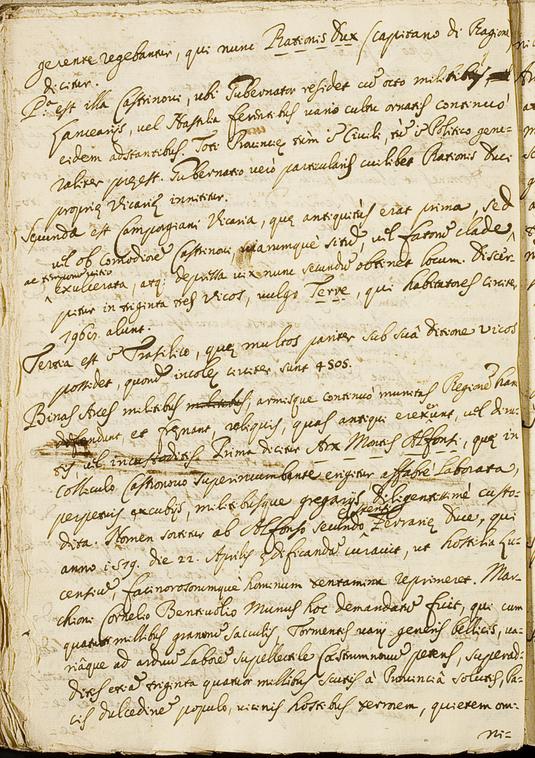 gerente regebantur, qui nunc Rationis Dux /Capitano di Ragione
dicitur.
P.a est illa Castrinovi, ubi Gubernator residet cũ octo militibus,
Lancearijs, vel Hastilia ferentibus vario cultu ornatis continuò
eidem adstantibus Toti Provinciæ tum ĩ Civili, tũ ĩ Politico gene=
raliter præest. Gubernatio verò particularis cuilibet Rationis Duci
propriæ Vicariæ innititur.
Secunda est Camporgiani Vicaria, quæ antiquitùs erat prima, sed
vel ob comodiorẽ Castrinovi situs, vel fatorũ clade,
ac
exulcerata, atq; depressa vix nunc secundũ obtinet locum. Discer=
pitur in triginta tres Vicos, vulgo Terre, qui habitatores circiter
7965. alunt.
Tertia est ĩ Trasilico, quæ multos pariter sub suâ ditione vicos
possidet, quorũ incolæ circiter sunt 4505.
Binas Arces militibus armisque continuò munitas Regionẽ hanc
defendunt, et reliquis, quas antiqui erexerunt, vel diru=
tis vel incustoditis Prima dicitur Arx Montis Alfonsi, quæ in
Colliculo Castronovo superincumbente erigitur affabrè laborata,
perpetuis excubijs, militibusque gregarijs diligentissimè custo=
dita. Nomen sortitur ab Alfonso secundo Ferrariæ Duce, qui
anno 1579. die 22. Aprilis ædificandã curavit, ut hostilia
facinorosorumque hominum tentamina reprimeret. Mar=
chioni Cornelio Bentivolio Munus hoc demandatũ fuit, qui cum
quatuor millibus granorũ saculis, Tormentis varij generis bellicis, va=
riaque ad arduũ laborẽ supellectile Castrumnovũ petens, superad=
ditis etiã triginta quatuor millibus scutis à Provinciâ solutis, Pa=
cis dulcedinẽ populo, vicinis hostibus terrorem, quietem om=
ni=